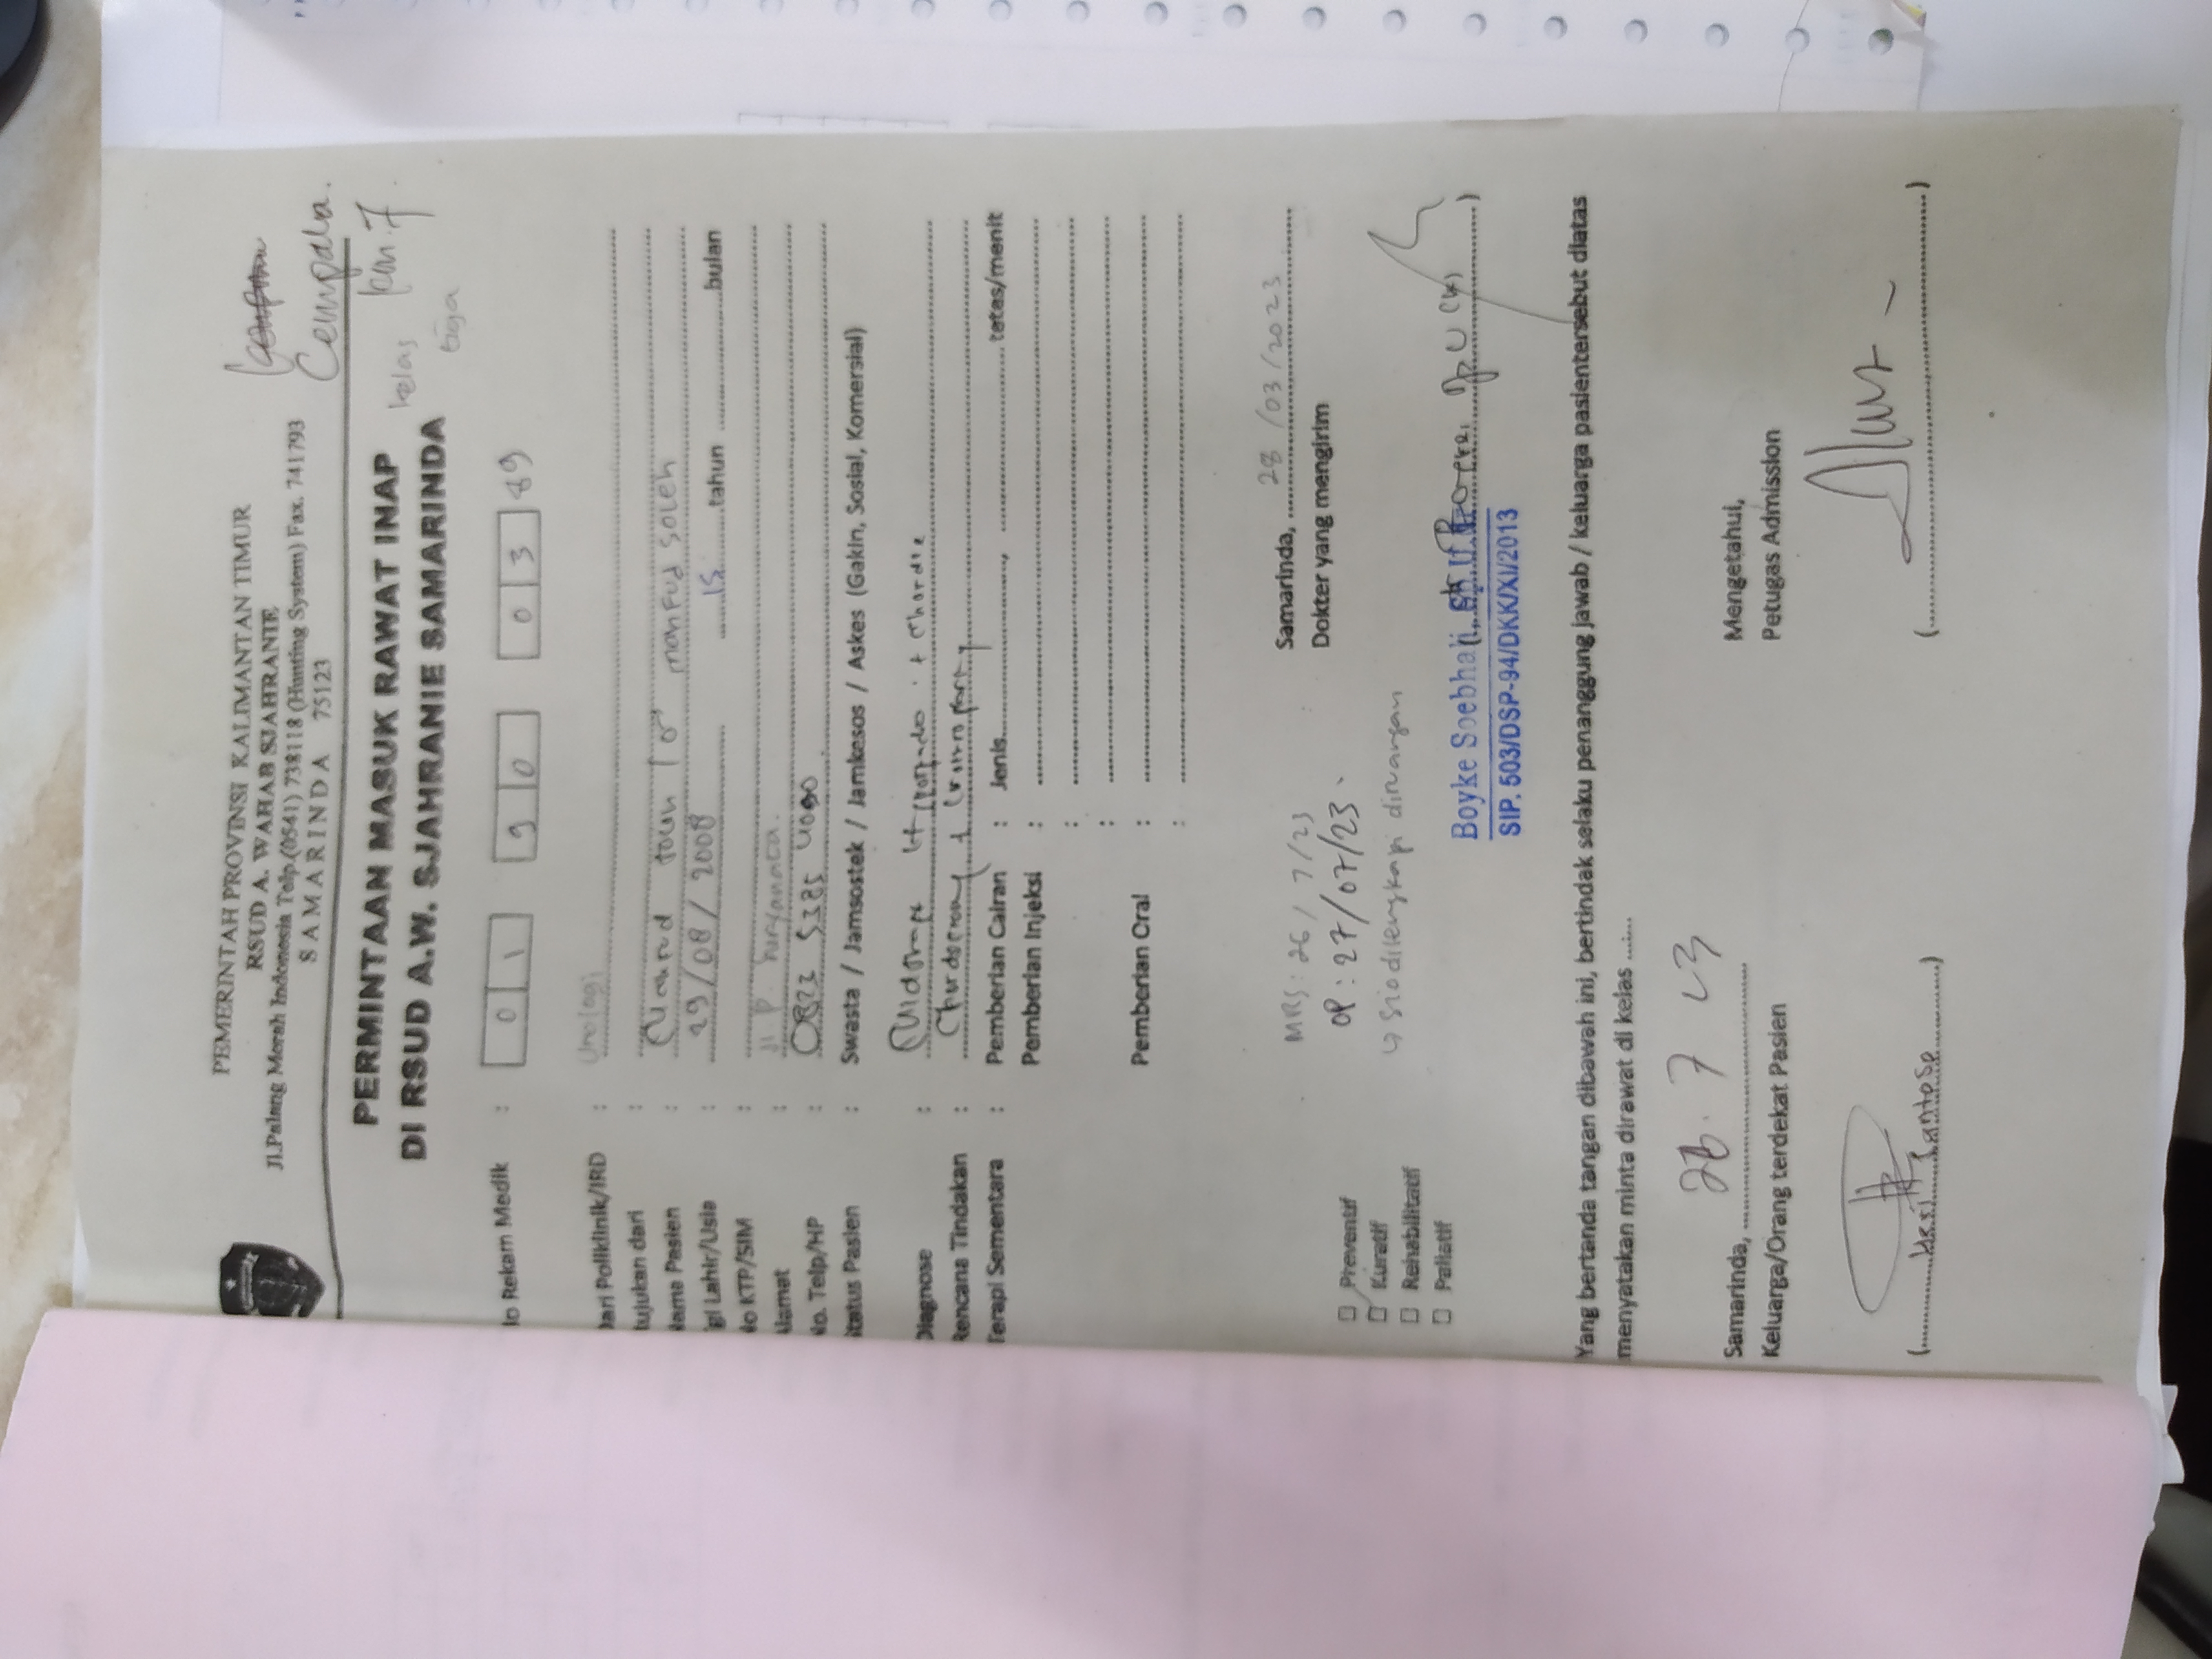 PEMERINTAH PROVINSI KALIMANTAN TIMUR
RSUD A. WAHAB SJAHRANIE
Jl.Palang Merah Indonesia Telp.(0541) 738118 (Hunting System) Fax. 741793
SAMARINDA 75123
Cempaka.
km.7
kelas
tiga
PERMINTAAN MASUK RAWAT INAP
DI RSUD A.W. SJAHRANIE SAMARINDA
o Rekam Medik : 01 90 03 89
Dari Poliklinik/IRD : Urologi
tujukan dari :
Nama Pasien : mahfud soleh
Tgl Lahir/Usia : 29/08/2008 15 tahun bulan
No KTP/SIM :
Alamat : Jl. P. Suryanata.
No. Telp/HP : 0823 5385 4090
Status Pasien : Swasta / Jamsostek / Jamkesos / Askes (Gakin, Sosial, Komersial)
Diagnose : + Chordie
Rencana Tindakan :
Terapi Sementara : Pemberian Cairan : Jenis, tetes/menit
Pemberian Injeksi :
:
:
Pemberian Oral :
:
Samarinda, 28/03/2023
Dokter yang mengirim
MRS : 26/7/23
OP : 27/07/23
↳ SIO dilengkapi diruangan
Preventif
Kuratif
Rehabilitatif
Paliatif
Boyke Soebhali, Sp.U.
SIP. 503/DSP-94/DKK/XI/2013
Yang bertanda tangan dibawah ini, bertindak selaku penanggung jawab / keluarga pasientersebut diatas
menyatakan minta dirawat di kelas .......
Samarinda, 26. 7 23
Keluarga/Orang terdekat Pasien
Mengetahui,
Petugas Admission
(Heri Santoso)